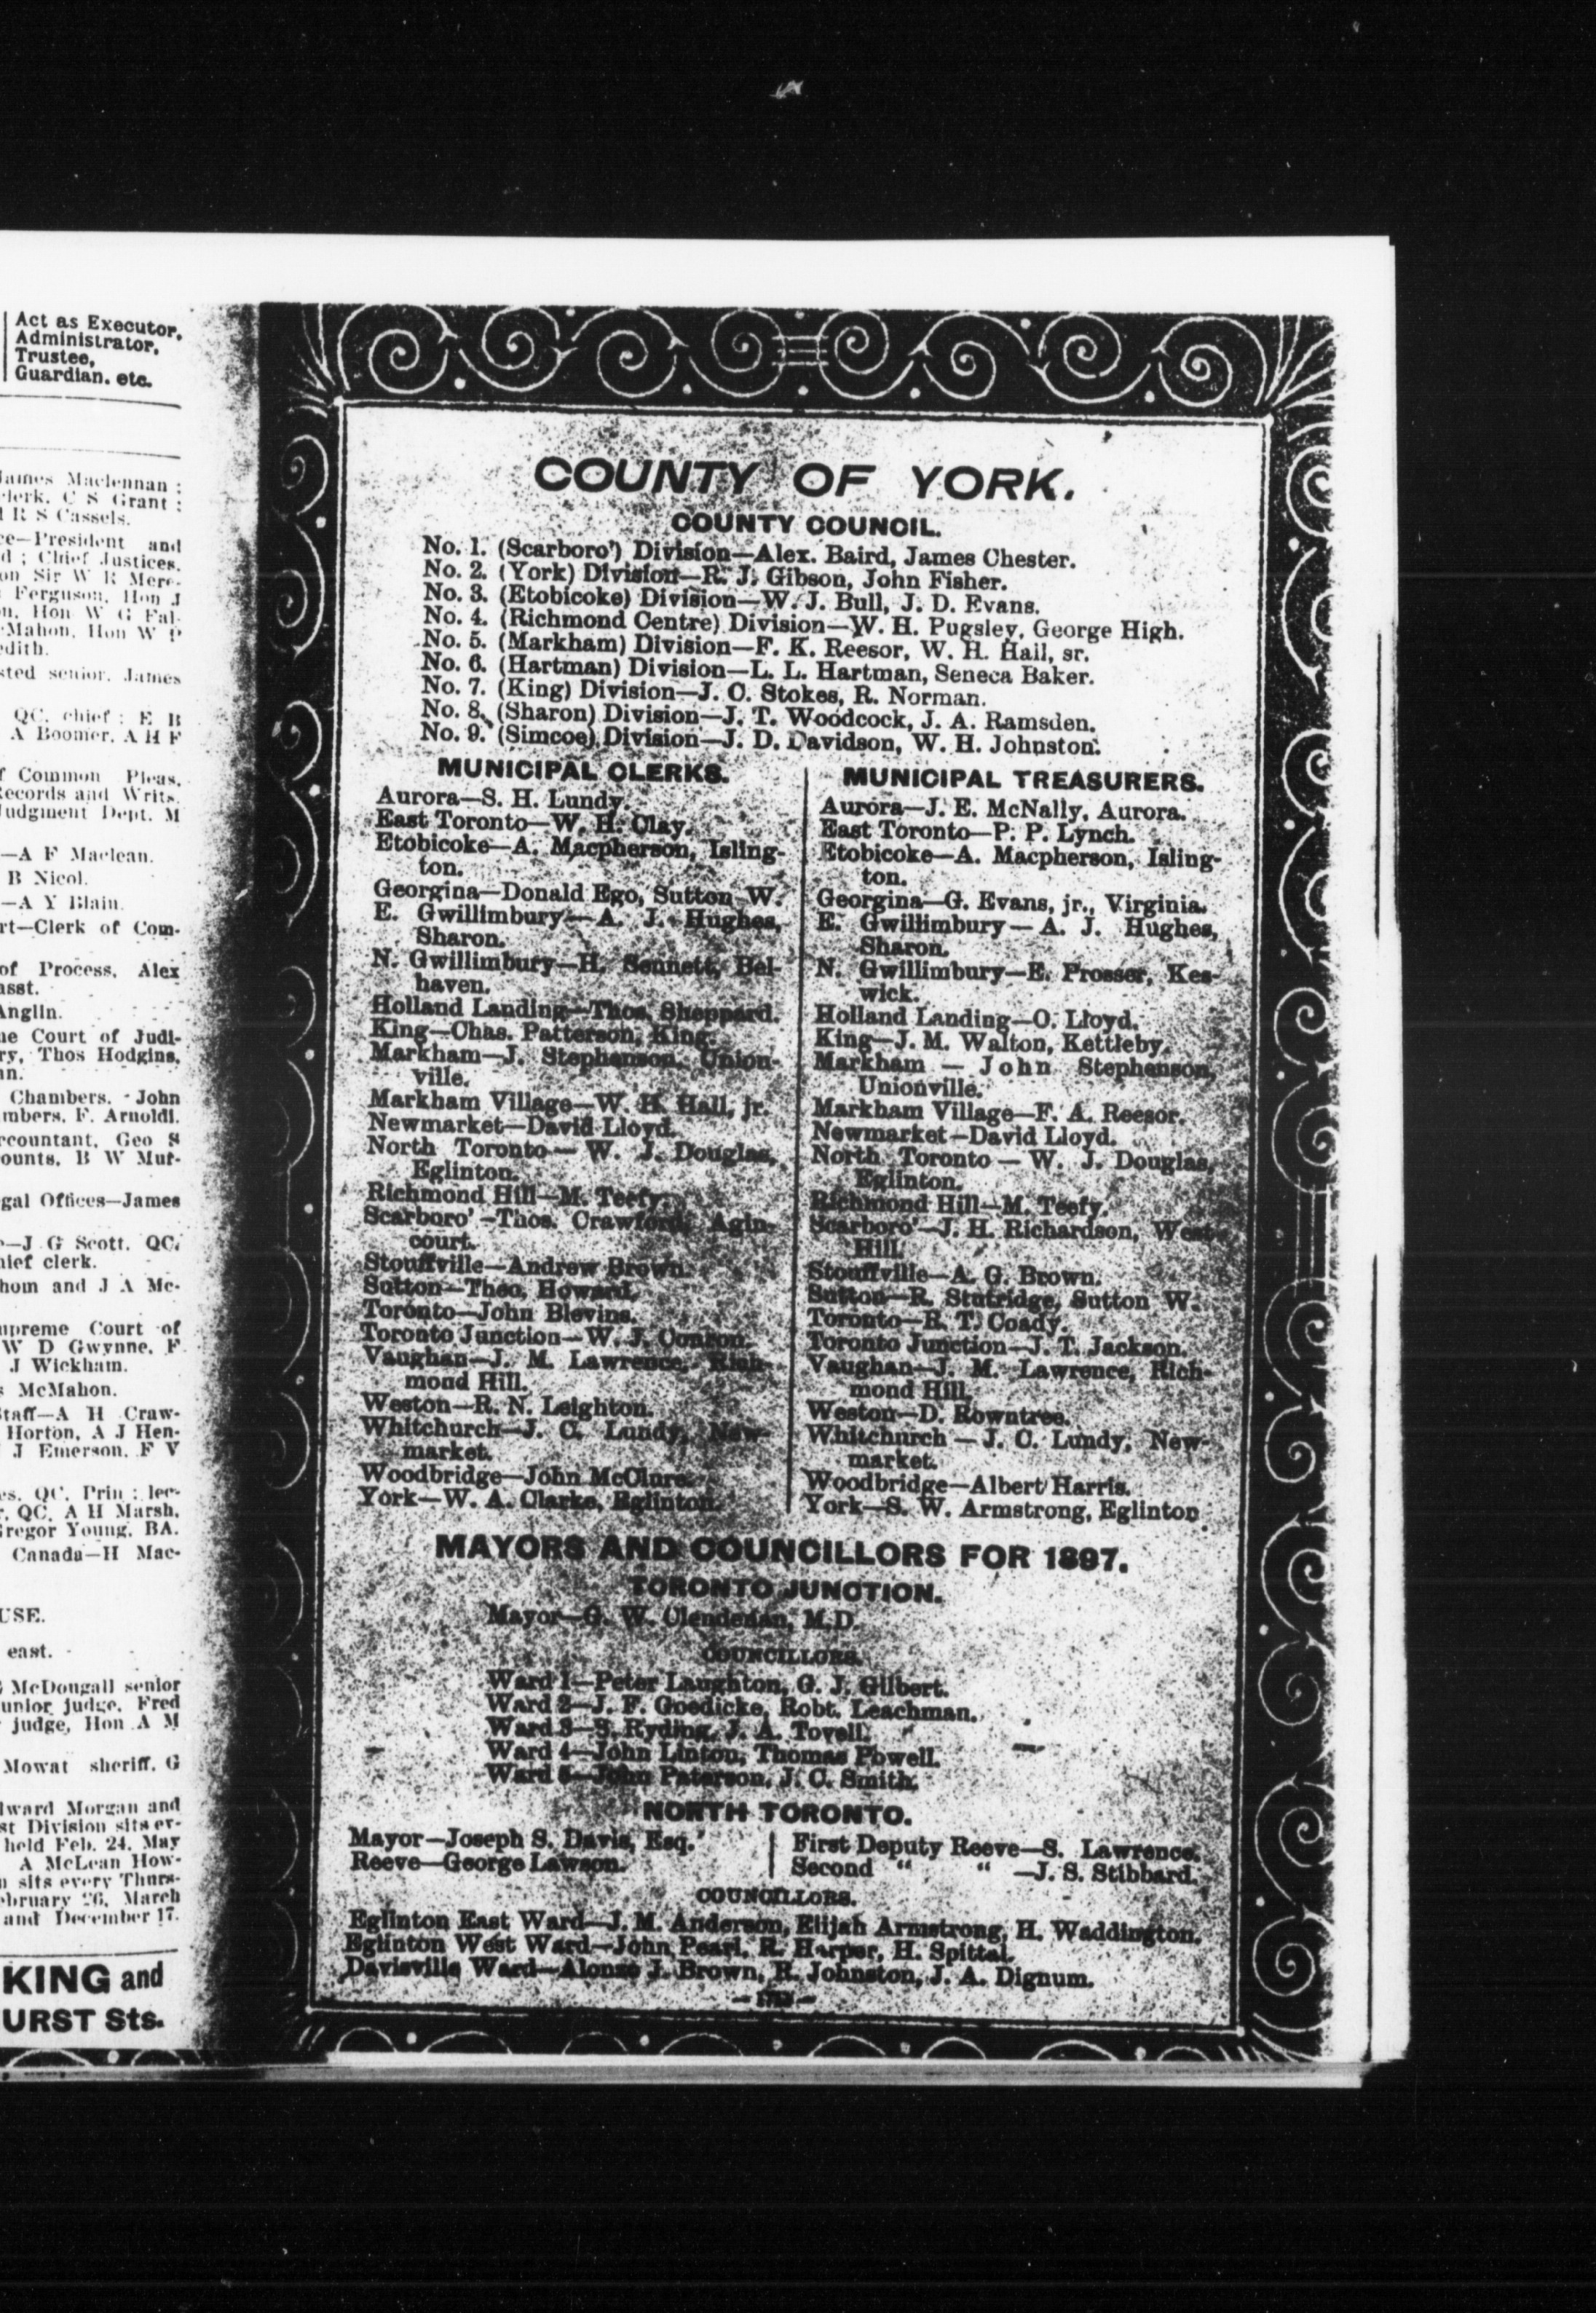 Act as Executor,
Administrator,
Trustee,
Guardian, etc.
James Maclennan ;
C S Grant ;
R S Cassels.
President and
d ; Chief Justices,
on Sir W R
Ferguson, Hon J
Hon W G
Hon W P
senior, James
QC, chief ; E B
A Boomer, A H F
Common Pleas.
Records and Writs.
Judgment Dept. M
—A F Maclean.
B Nicol.
—A Y Blain.
Clerk of Com-
of Process, Alex
asst.
Anglin.
Court of Judi-
Thos Hodgins,
Chambers, John
F. Arnoldi.
Geo S
B W Mur-
Offices—James
—J G Scott, QC,
clerk.
and J A Mc-
Court of
W D Gwynne, F
J Wickham.
McMahon.
A H Craw-
Horton, A J Hen-
J Emerson, F V
QC, Prin ; lec-
QC, A H Marsh,
Gregor Young, BA.
Canada—H Mac-
east.
McDougall senior
junior judge, Fred
judge, Hon A M
Mowat sheriff, G
Morgan and
Division sits ev-
held Feb. 24, May
A McLean How-
sits every Thurs-
February 26, March
and December 17.
KING and
URST Sts.
COUNTY OF YORK.
COUNTY COUNCIL.
No. 1. (Scarboro') Division—Alex. Baird, James Chester.
No. 2. (York) Division—R. J. Gibson, John Fisher.
No. 3. (Etobicoke) Division—W. J. Bull, J. D. Evans.
No. 4. (Richmond Centre) Division—W. H. Pugsley, George High.
No. 5. (Markham) Division—F. K. Reesor, W. H. Hall, sr.
No. 6. (Hartman) Division—L. L. Hartman, Seneca Baker.
No. 7. (King) Division—J. C. Stokes, R. Norman.
No. 8. (Sharon) Division—J. T. Woodcock, J. A. Ramsden.
No. 9. (Simcoe) Division—J. D. Davidson, W. H. Johnston.
MUNICIPAL CLERKS.
Aurora—S. H. Lundy.
East Toronto—W. H. Clay.
Etobicoke—A. Macpherson, Isling-
ton.
Georgina—Donald Ego, Sutton W.
E. Gwillimbury—A. J. Hughes,
Sharon.
N. Gwillimbury—H. Sennett, Bel-
haven.
Holland Landing—Thos. Sheppard.
King—Chas. Patterson, King.
Markham—J. Stephenson, Union-
ville.
Markham Village—W. H. Hall, jr.
Newmarket—David Lloyd.
North Toronto — W. J. Douglas,
Eglinton.
Richmond Hill—M. Teefy.
Scarboro'—Thos. Crawford, Agin-
court.
Stouffville—Andrew Brown.
Sutton—Theo. Howard.
Toronto—John Blevins.
Toronto Junction—W. J. Conron.
Vaughan—J. M. Lawrence, Rich-
mond Hill.
Weston—R. N. Leighton.
Whitchurch—J. C. Lundy, New-
market.
Woodbridge—John McClure.
York—W. A. Clarke, Eglinton.
MUNICIPAL TREASURERS.
Aurora—J. E. McNally, Aurora.
East Toronto—P. P. Lynch.
Etobicoke—A. Macpherson, Isling-
ton.
Georgina—G. Evans, jr., Virginia.
E. Gwillimbury — A. J. Hughes,
Sharon.
N. Gwillimbury—E. Prosser, Kes-
wick.
Holland Landing—O. Lloyd.
King—J. M. Walton, Kettleby.
Markham — John Stephenson,
Unionville.
Markham Village—F. A. Reesor.
Newmarket—David Lloyd.
North Toronto — W. J. Douglas,
Eglinton.
Richmond Hill—M. Teefy.
Scarboro'—J. H. Richardson, West
Hill.
Stouffville—A. G. Brown.
Sutton—R. Stutridge, Sutton W.
Toronto—R. T. Coady.
Toronto Junction—J. T. Jackson.
Vaughan—J. M. Lawrence, Rich-
mond Hill.
Weston—D. Rowntree.
Whitchurch — J. C. Lundy, New-
market.
Woodbridge—Albert Harris.
York—S. W. Armstrong, Eglinton
MAYORS AND COUNCILLORS FOR 1897.
TORONTO JUNCTION.
Mayor—G. W. Clendenan, M.D.
COUNCILLORS.
Ward 1—Peter Laughton, G. J. Gilbert.
Ward 2—J. F. Goedicke, Robt. Leachman.
Ward 3—S. Ryding, J. A. Tovell.
Ward 4—John Linton, Thomas Powell.
Ward 5—John Paterson, J. C. Smith.
NORTH TORONTO.
Mayor—Joseph S. Davis, Esq.
Reeve—George Lawson.
First Deputy Reeve—S. Lawrence.
Second " " —J. S. Stibbard.
COUNCILLORS.
Eglinton East Ward—J. M. Anderson, Elijah Armstrong, H. Waddington.
Eglinton West Ward—John Pearl, R. Harper, H. Spittal.
Davisville Ward—Alonzo J. Brown, R. Johnston, J. A. Dignum.